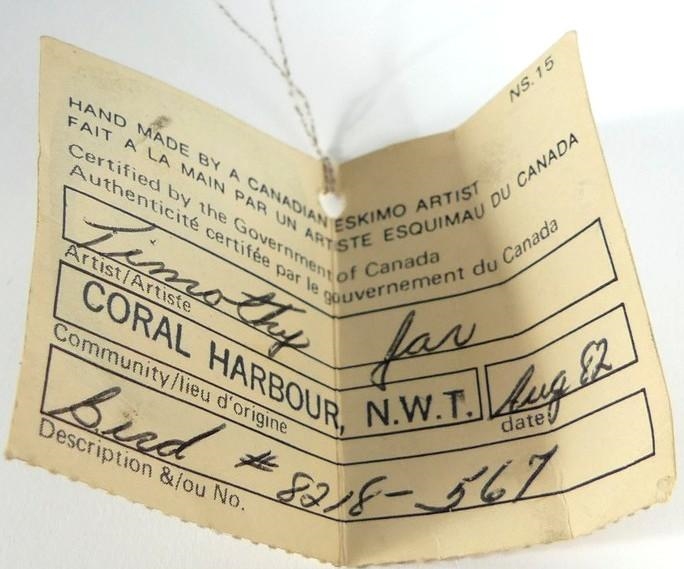 NS.15
HAND MADE BY A CANADIAN ESKIMO ARTIST
FAIT A LA MAIN PAR UN ARTISTE ESQUIMAU DU CANADA
Certified by the Government of Canada
Authenticité certifée par le gouvernement du Canada
Timothy Jar
Artist/Artiste
CORAL HARBOUR, N.W.T. Aug 82
Community/lieu d'origine date
Bird # 8218-567
Description &/ou No.